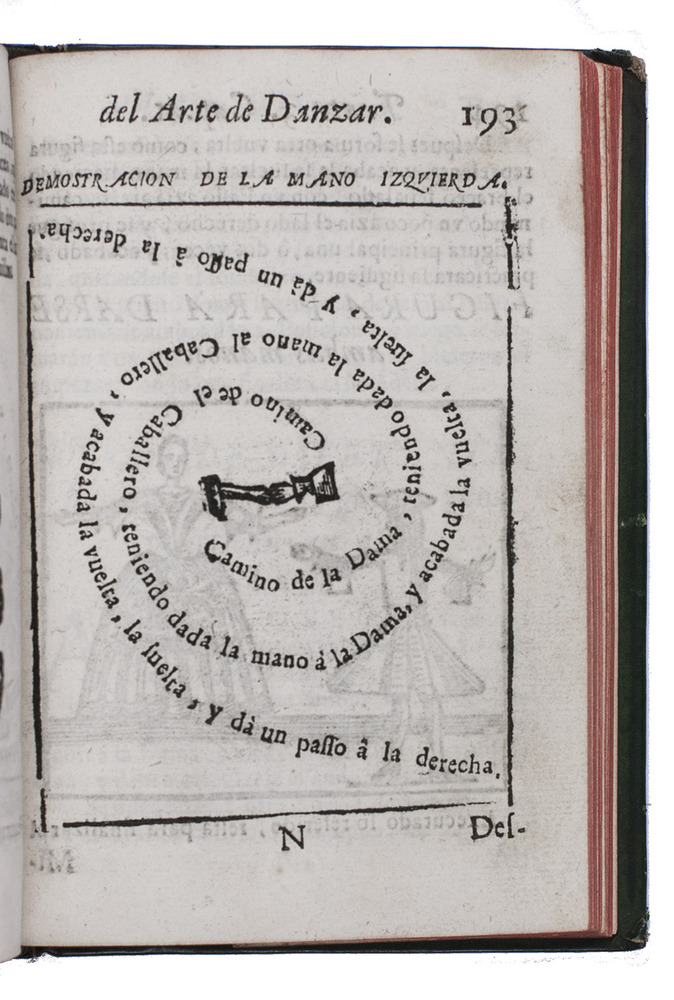 del Arte de Danzar. 193
DEMOSTRACION DE LA MANO IZQVIERDA.
Camino de el Caballero, teniendo dada la mano à la Dama, y acabada la vuelta, la ſuelta, y dà un paſſo à la derecha.
Camino de la Dama, teniendo dada la mano al Caballero, y acabada la vuelta, la ſuelta, y dà un paſſo â la derecha,
N Deſ-